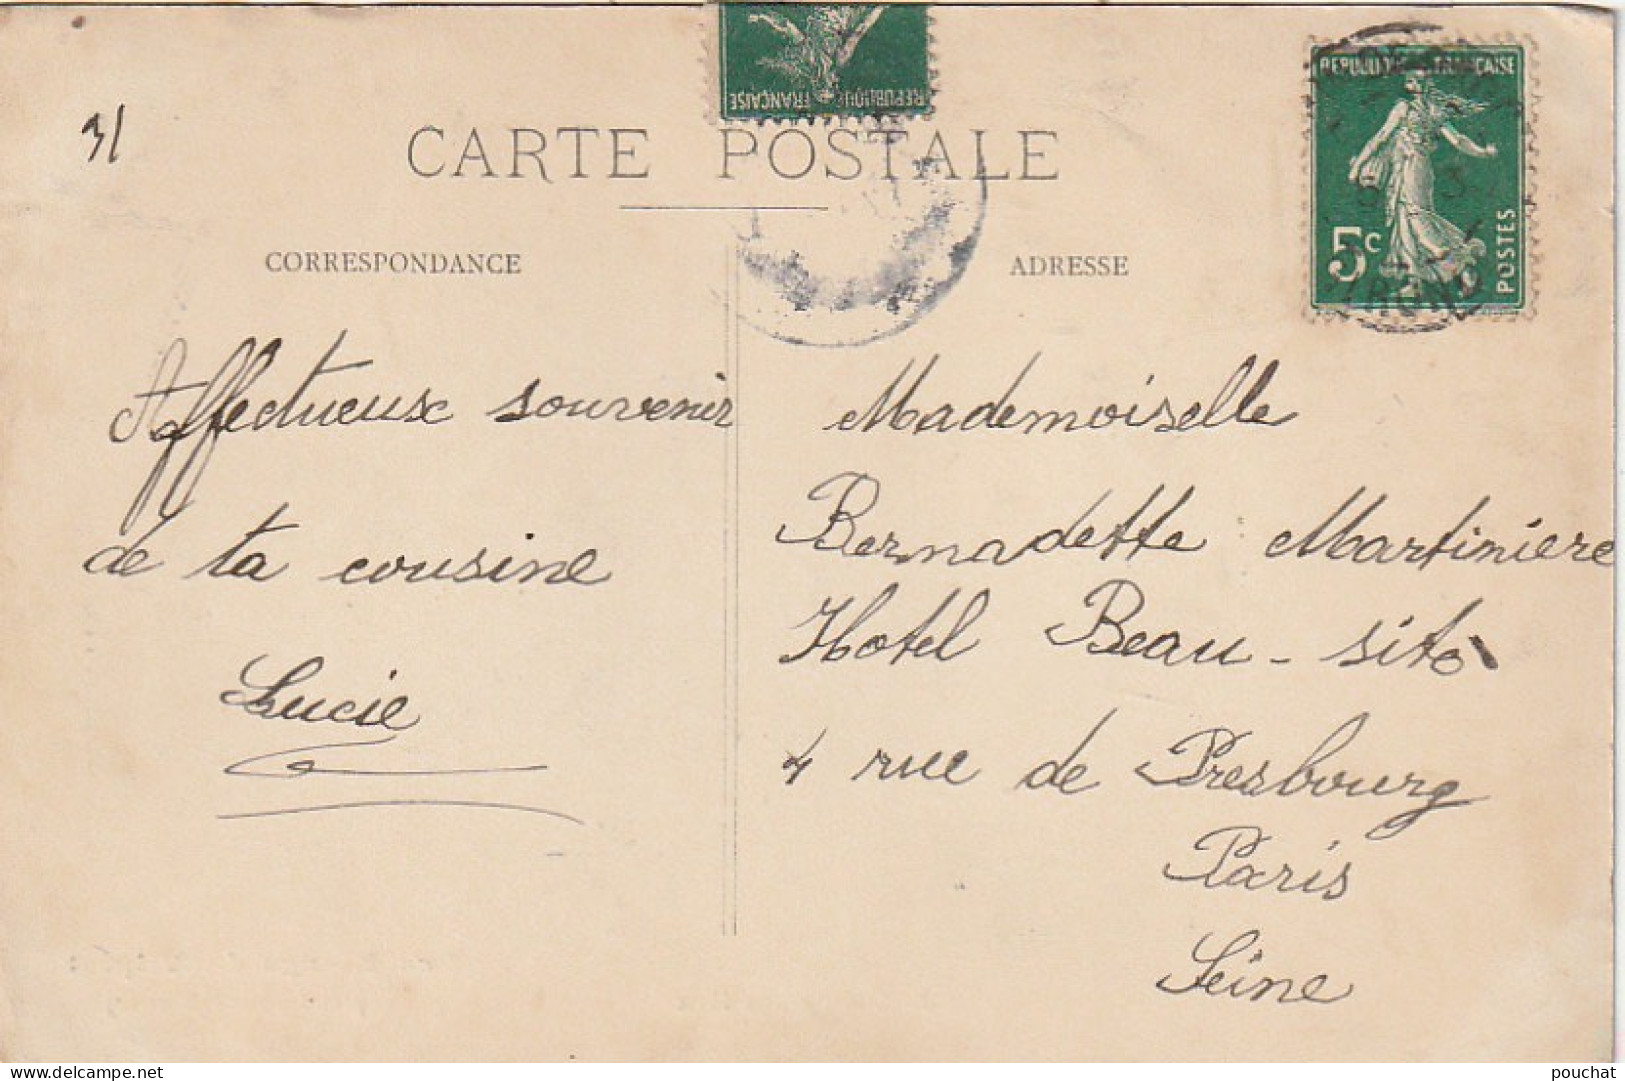 RÉPUBLIQUE FRANÇAISE
31
CARTE POSTALE
RÉPUBLIQUE FRANÇAISE
5c
POSTES
CORRESPONDANCE
ADRESSE
Affectueux souvenir
de ta cousine
Lucie
Mademoiselle
Bernadette Martiniere
Hotel Beau-site
4 rue de Presbourg
Paris
Seine
delcampe.net
pouchat